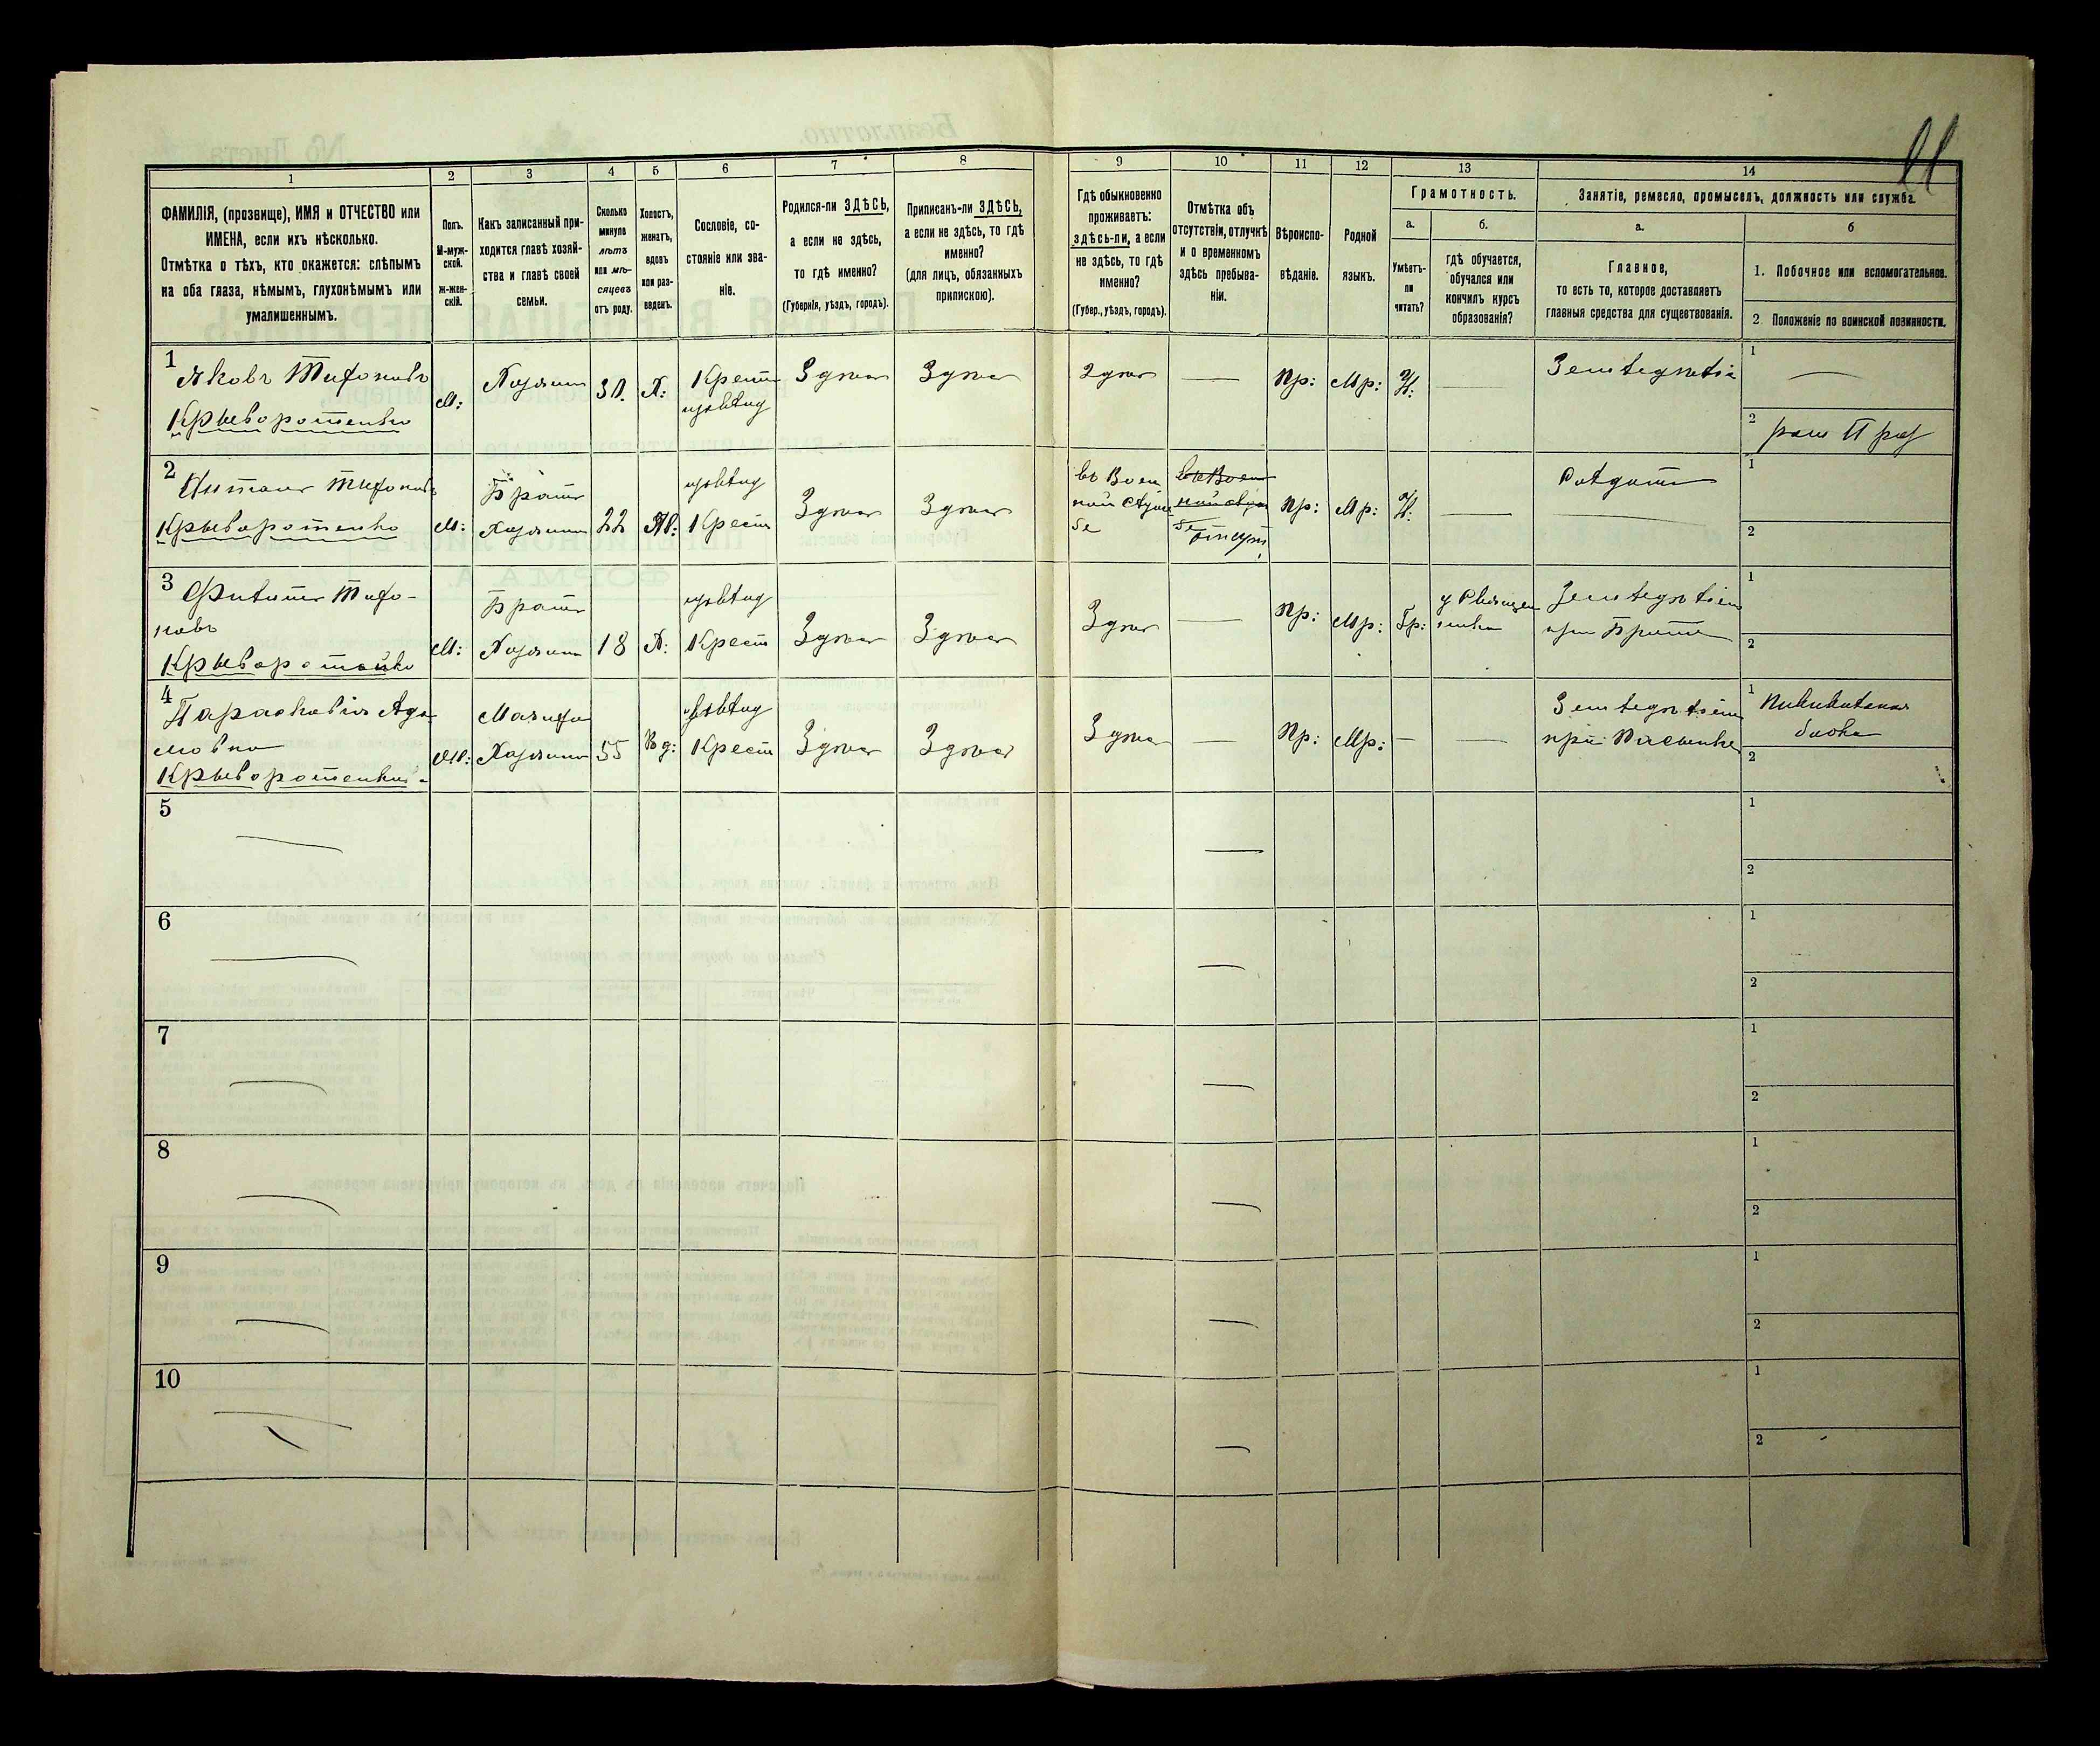 11
1
2
3
4
5
6
7
8
9
10
11
12
13
14
ФАМИЛІЯ, (прозвище), ИМЯ и ОТЧЕСТВО или
ИМЕНА, если ихъ нѣсколько.
Отмѣтка о тѣхъ, кто окажется: слѣпымъ
на оба глаза, нѣмымъ, глухонѣмымъ или
умалишеннымъ.
Полъ.
М-муж-
ской.
ж-жен-
скій.
Какъ записанный при-
ходится главѣ хозяй-
ства и главѣ своей
семьи.
Сколько
минуло
лѣтъ
или мѣ-
сяцевъ
отъ роду.
Холостъ,
женатъ,
вдовъ
или раз-
веденъ.
Сословіе, со-
стояніе или зва-
ніе.
Родился-ли ЗДѢСЬ,
а если не здѣсь,
то гдѣ именно?
(Губернія, уѣздъ, городъ).
Приписанъ-ли ЗДѢСЬ,
а если не здѣсь, то гдѣ
именно?
(для лицъ, обязанныхъ
припискою).
Гдѣ обыкновенно
проживаетъ:
здѣсь-ли, а если
не здѣсь, то гдѣ
именно?
(Губер., уѣздъ, городъ).
Отмѣтка объ
отсутствіи, отлучкѣ
и о временномъ
здѣсь пребыва-
ніи.
Вѣроиспо-
вѣданіе.
Родной
языкъ.
Грамотность.
а.
Умѣетъ-
ли
читать?
б.
гдѣ обучается,
обучался или
кончилъ курсъ
образованія?
Занятіе, ремесло, промыселъ, должность или служба.
а.
Главное,
то есть то, которое доставляетъ
главныя средства для существованія.
б
1. Побочное или вспомогательное.
2. Положеніе по воинской повинности.
1
Яковъ Тифоновъ
Крыворотенко
М:
Хозяинъ
30.
Х:
Крест
Здѣсь
Здѣсь
Здѣсь
Пр:
Мр:
Н:
Земледѣліе
1
2
2
Тифоновъ
Крыворотенко
М:
Братъ
Хозяина
22
Крест
Здѣсь
Здѣсь
въ Воен
ной Служ
бе
въ Воен
ной Служ
бе
Пр:
Мр:
Н:
Солдатъ
1
2
3
Филипъ Тифо-
новъ
Крыворотенко
М:
Братъ
Хозяина
18
Х:
Крест
Здѣсь
Здѣсь
Здѣсь
Пр:
Мр:
Гр:
у Священ
ника
Земледѣліе
при Братѣ
1
2
4
Параскевія Ада
мовна
Крыворотенкова
Ж:
Мачиха
Хозяина
55
Вд:
Крест
Здѣсь
Здѣсь
Здѣсь
Пр:
Мр:
Земледѣліе
при Пасынке
1
бабка
2
5
1
2
6
1
2
7
1
2
8
1
2
9
1
2
10
1
2